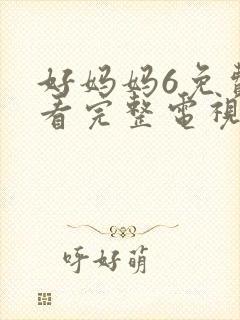 好妈妈6免費
看完整電視
呼好萌